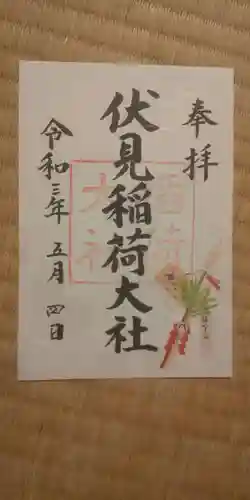 奉拝
伏見稲荷大社
令和三年 五月 四日